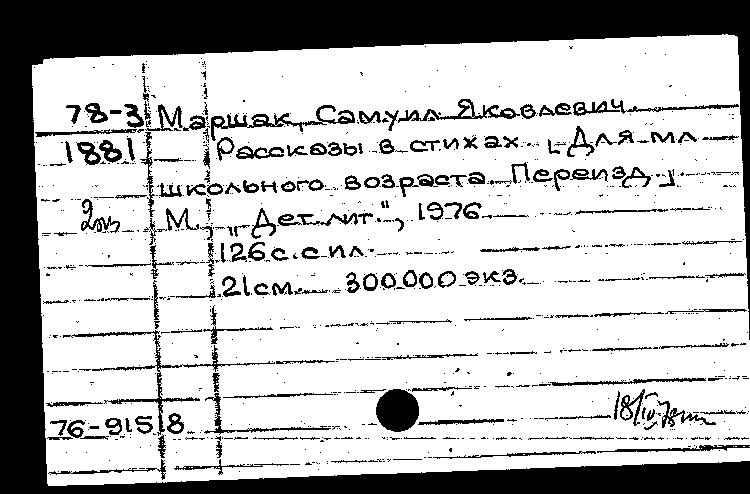 78-3 Маршак, Самуил Яковлевич.
1881 Рассказы в стихах. [Для мл.
школьного возраста. Переизд.]
2экз М., „Дет. лит.", 1976.
126 с. с ил.
21 см. 300000 экз.
76-91518
18/IV-78